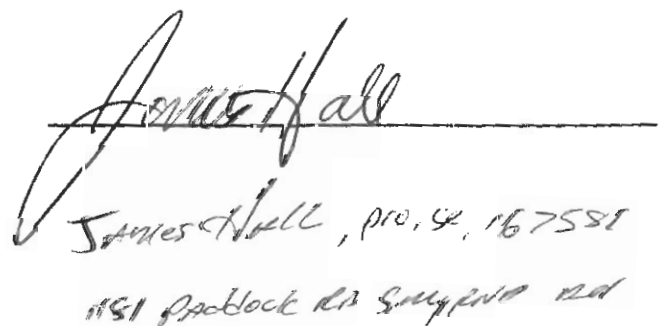 James Hall
James Hall, pro, se, 167581
1181 Paddock RD Smyrna